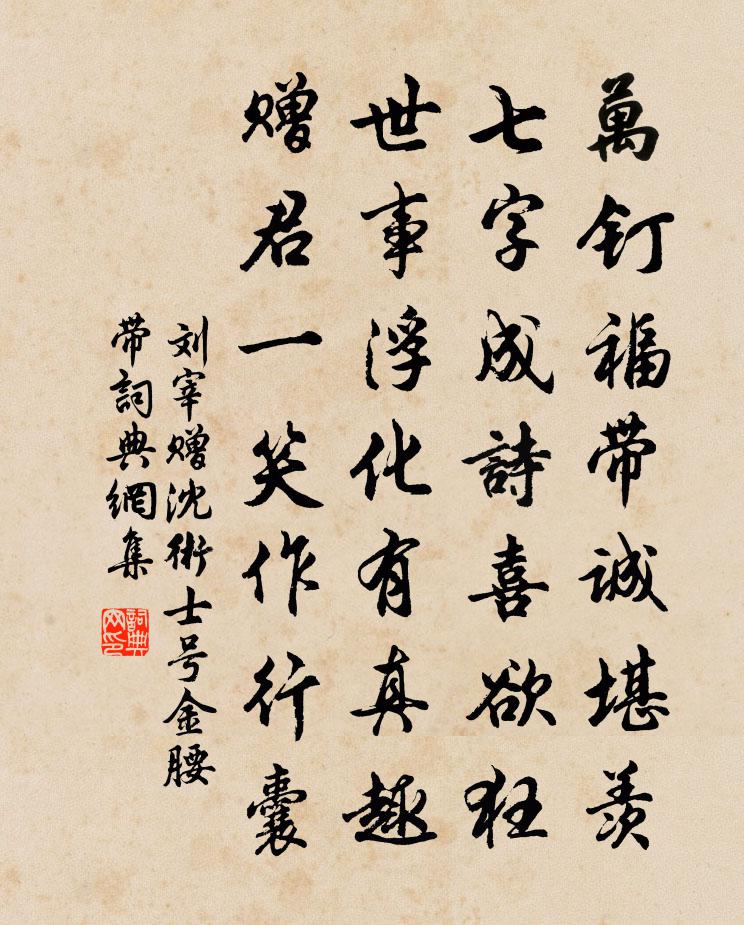 萬釘福带誠堪羨
七字成詩喜欲狂
世事浮化有真趣
赠君一笑作行囊
刘宰赠沈術士号金腰
带詞典網集
詞典网印